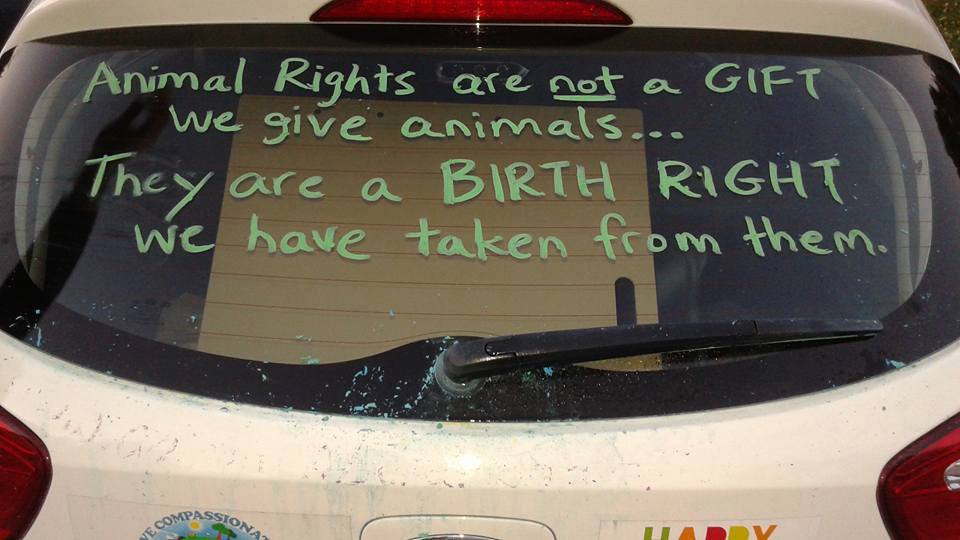 Animal Rights are not a GIFT
We give animals...
They are a BIRTH RIGHT
we have taken from them.
HAPPY